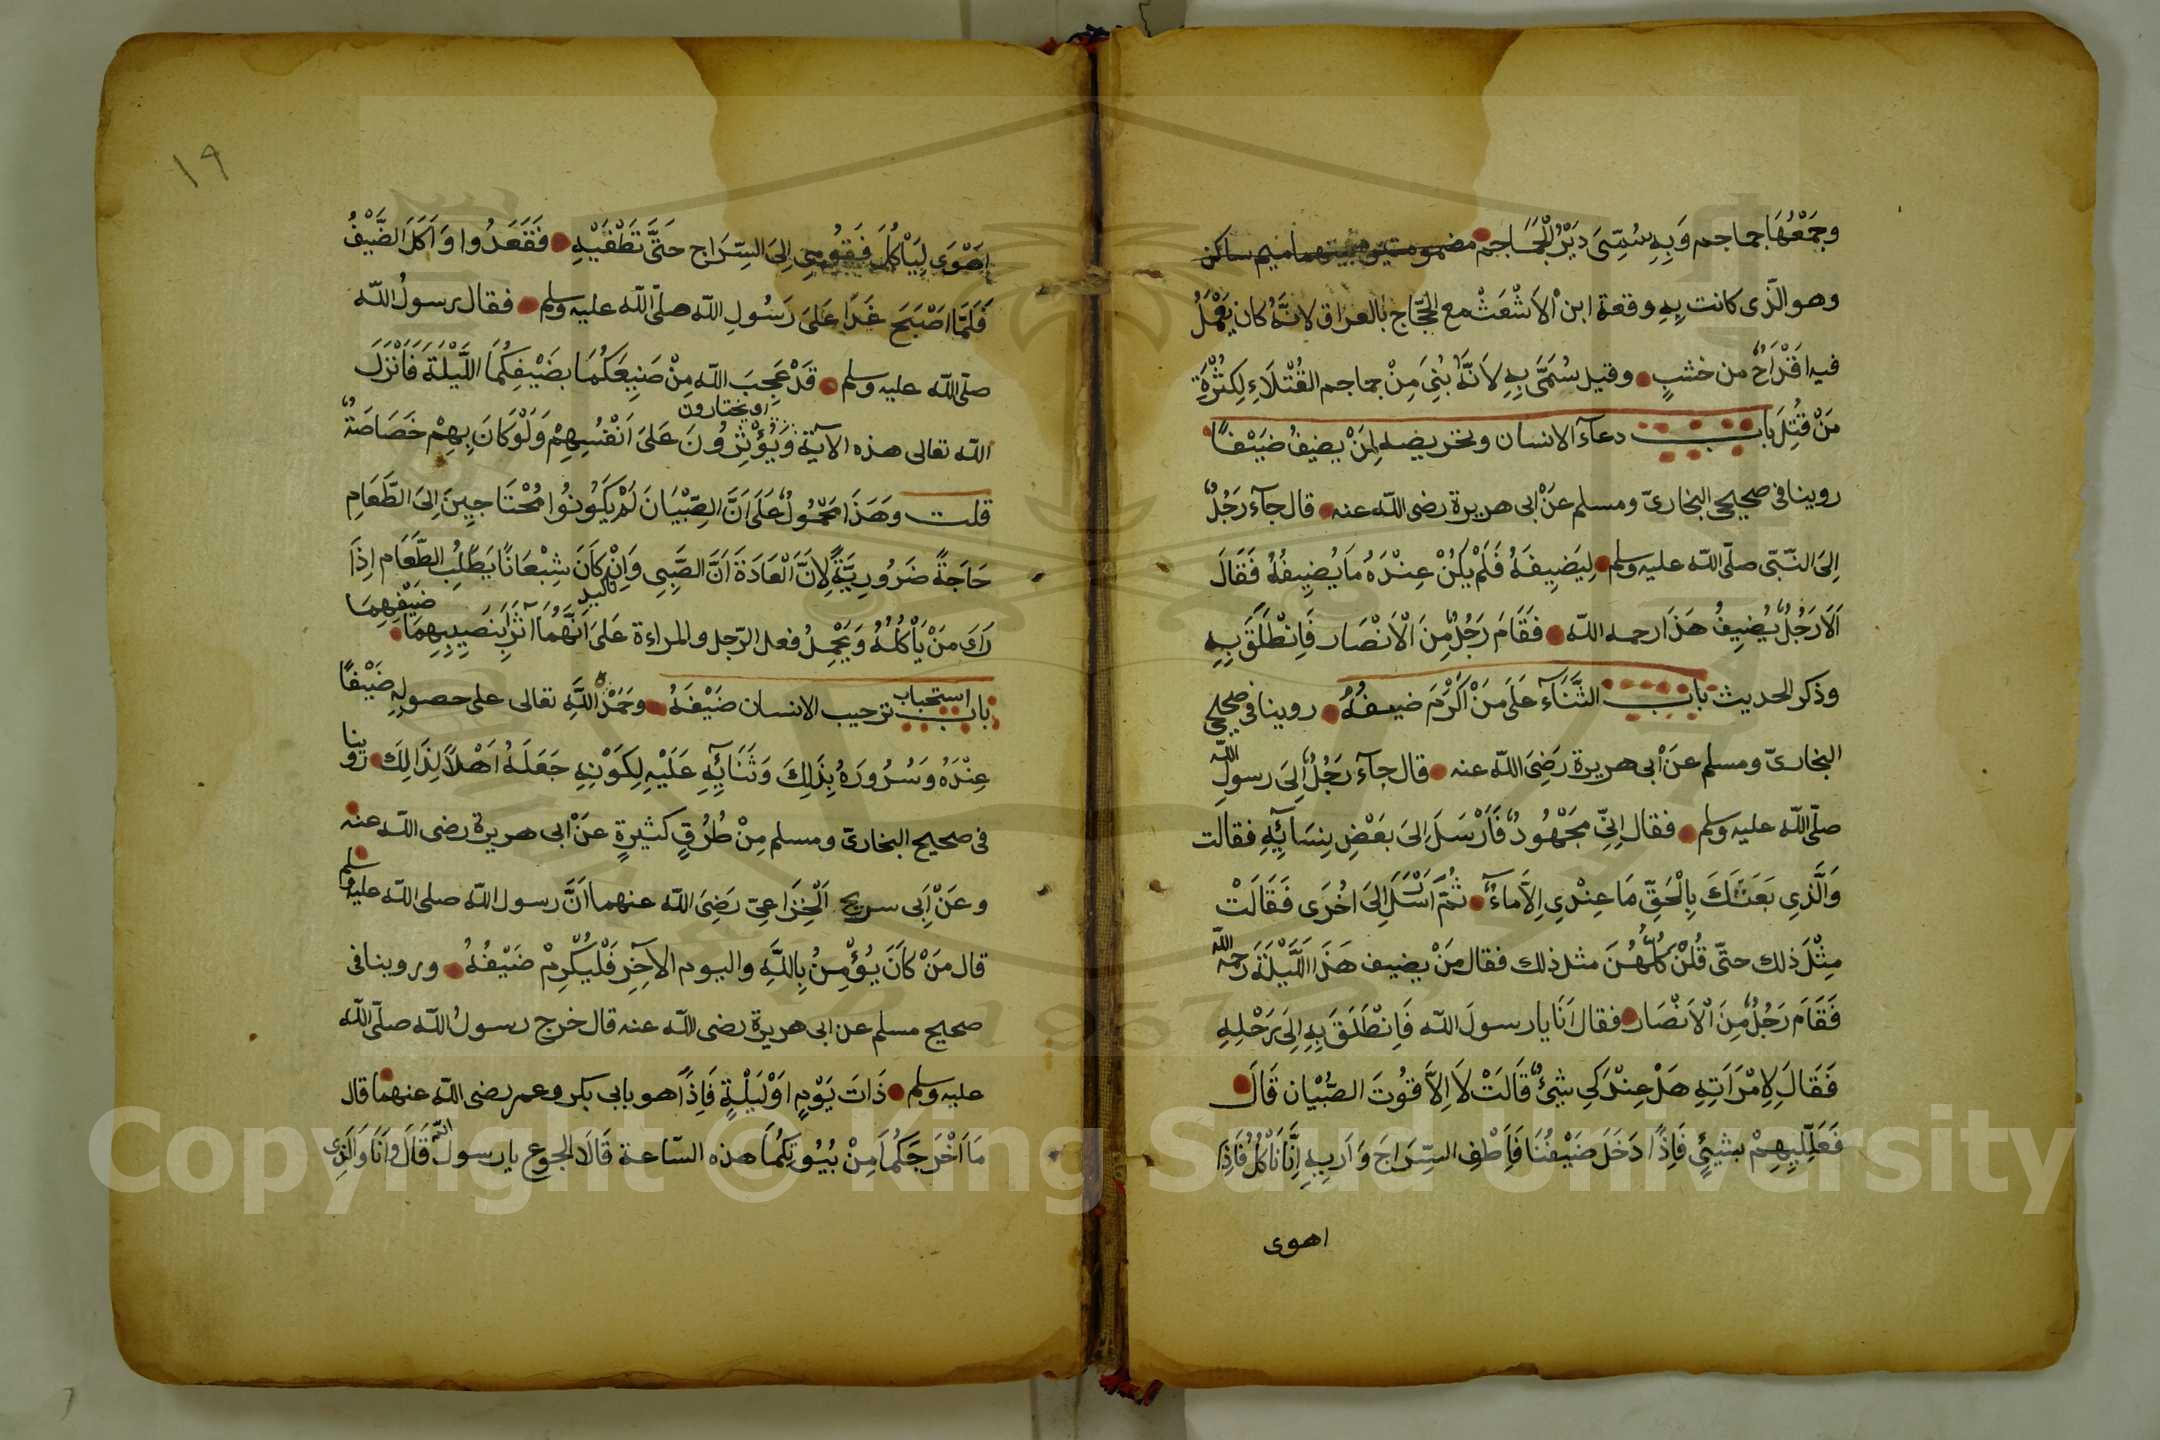 وَجَمْعُهَا جماجم وَبِهِ سُمِّىَ دَيْرُ الْجَمَاجِم مضمومتين بينهما ميم ساكن
وهو الّذى كانت بِهِ وقعة ابن الاَشْعَثْ مع الحَجّاج بالعراق لانَّهُ كان يُعْمَلُ
فيه اقْدَاحٌ من خشبٍ وقيل سُمِّىَ بِهِ لاَنَّهُ بُنِىَ مِنْ جماجم القُتْلاَءِ لِكثْرَةِ
مَنْ قُتِلَ باب دعاءَ الانسان وتحريضه لِمَنْ يضيفُ ضَيْفًا
روينا فى صحيحى البخارىّ ومسلم عَنْ ابى هريرة رضى اللّه عنه قال جآء رَجُلٌ
اِلىَ النّبىّ صلّى اللّه عليه وسلم لِيَضِيفَهُ فَلَمْ يَكُنْ عِنْدَهُ مَا يُضِيفُهُ فَقَالَ
اَلاَ رَجُلٌ يُضِيفُ هَذَا رحمه اللّه فَقَامَ رَجُلٌ مِنَ الْاَنْصَار فَانْطَلَقَ بِهِ
وذكر الحديث باب الثَّنَآءِ عَلَى مَنْ اَكْرَمَ ضيفُهُ روينا فى صحيحى
البخارىّ ومسلم عَنْ ابى هريرة رَضِىَ اللّه عنه قال جآء رَجُلٌ اِلىَ رسولِ اللّه
صلّى اللّه عليه وسلم فقال اِنِّى مَجْهُودٌ فَاَرْسَلَ اِلىَ بَعْضِ نِسَآئِهِ فقالت
وَالَّذِي بَعَثَكَ بِالْحَقِّ مَا عِنْدِى اِلاَّ مآءٌ ثُمَّ اَرْسَلَ اِلىَ اُخْرَى فَقَالَتْ
مِثْلَ ذلك حتّى قُلْنَ كُلُّهُنَ مثل ذلك فقال مَنْ يضيف هَذَا اللَّيْلَةَ رحمه اللّه
فَقَامَ رَجُلٌ مِنَ الْاَنْصَار فقال اَنَا يا رسولَ اللّه فَانْطَلَقَ بِهِ اِلىَ رَحْلِهِ
فَقَالَ لِامْرَاَتِهِ هَلْ عِنْدَكِى شيْئٌ قَالَتْ لاَ اِلاَّ قوُتَ الصُّبْيَان قَالَ
فَعَلِّلِيهِمْ بشيْئٍ فَاِذَا دَخَلَ ضَيْفُنَا فَاَطْفِ السِّرَاجَ وَاَرِيِهِ اِنَّا نَاْكُلُ فَاِذَا
اهوى
١٩
اهْوَى لِيَاْكُلَ فَقُومِى اِلىَ السِّرَاج حَتَّى تَطْفَيْهِ فَقَعَدُوا وَاَكَلَ الضَّيْفُ
فَلَمَّا اصْبَحَ غَدَا عَلىَ رَسُولِ اللّه صلّى اللّه عليه وسلم فقال رسولُ اللّه
صلّى اللّه عليه وسلم قَدْ عَجِبَ اللّه مِنْ صَنِيعَكُمَا بضَيْفِكُمَا اللَّيْلَةَ فَاَنْزَلَ
اى يختارون
اللّه تعالى هذه الآية وَيُؤْثِرُونَ عَلىَ اَنْفُسِهِمْ وَلَوْ كَانَ بِهِمْ خَصَاصَةٌ
قلت وَهَذَا مَحْمُولٌ عَلَى اَنَّ الصِّبْيَانَ لَمْ يَكُونُوا مُحْتَاجِينَ اِلىَ الطَّعَامِ
حَاجَةً ضَرُورِيَّةً لِاَنَّ الْعَادَةَ اَنَّ الصَّبِى وَاِنْ كَانَ شِبْعَانًا يَطْلُبُ الطَّعَام اِذَا
رَاَىَ مَنْ يَاْكُلُهُ وَيَحْمِلُ فعل الرّجل والمراءة عَلىَ اَنَّهُمَا آثَرَا بِنَصِيبِهِمَا ضَيْفِهِمَا
باب استحباب ترحيب الانسان ضَيْفَهُ وحَمْدُ اللّهِ تعالى على حصولِهِ ضَيْفًا
عِنْدَهُ وَسُرُورَهُ بِذَلِكَ وَثَنَائِهِ عَلَيْهِ لِكَوْنِهِ جَعَلَهُ اَهْلاً لِذَالِكَ روينا
فى صحيح البخارىّ ومسلم مِنْ طُرُقٍ كثيرةٍ عَنْ ابى هريرة رضى اللّه عنه
وعَنْ اَبِى سريح الْخُزَاعِىّ رَضِىَ اللّه عنهما اَنَّ رسول اللّه صلى اللّه عليه وسلم
قال مَنْ كَانَ يُؤْمِنُ بِاللَّهِ واليوم الآخِرِ فَلْيُكْرِمْ ضَيْفُهُ وروينا فى
صحيح مسلم عن ابى هريرة رضى اللّه عنه قال خرج رسولُ اللّه صلّى اللّه
عليه وسلم ذَاتَ يَوْمٍ اوْ لَيْلَةٍ فَاِذًا هو بابى بكر وعمر رضى اللّه عنهما قال
مَا اَخْرَجَكُمَا مِنْ بُيُوتِكُمَا هذه السّاعة قَالاَ الجوع يا رسول اللّه قَالَ وَاَنَا وَالَّذِى
Copyright © King Saud University